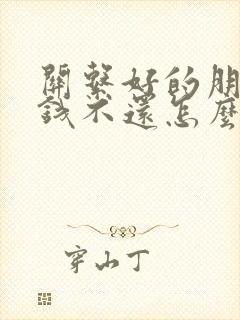 關繫好的朋
錢不還怎麼
穿山丁